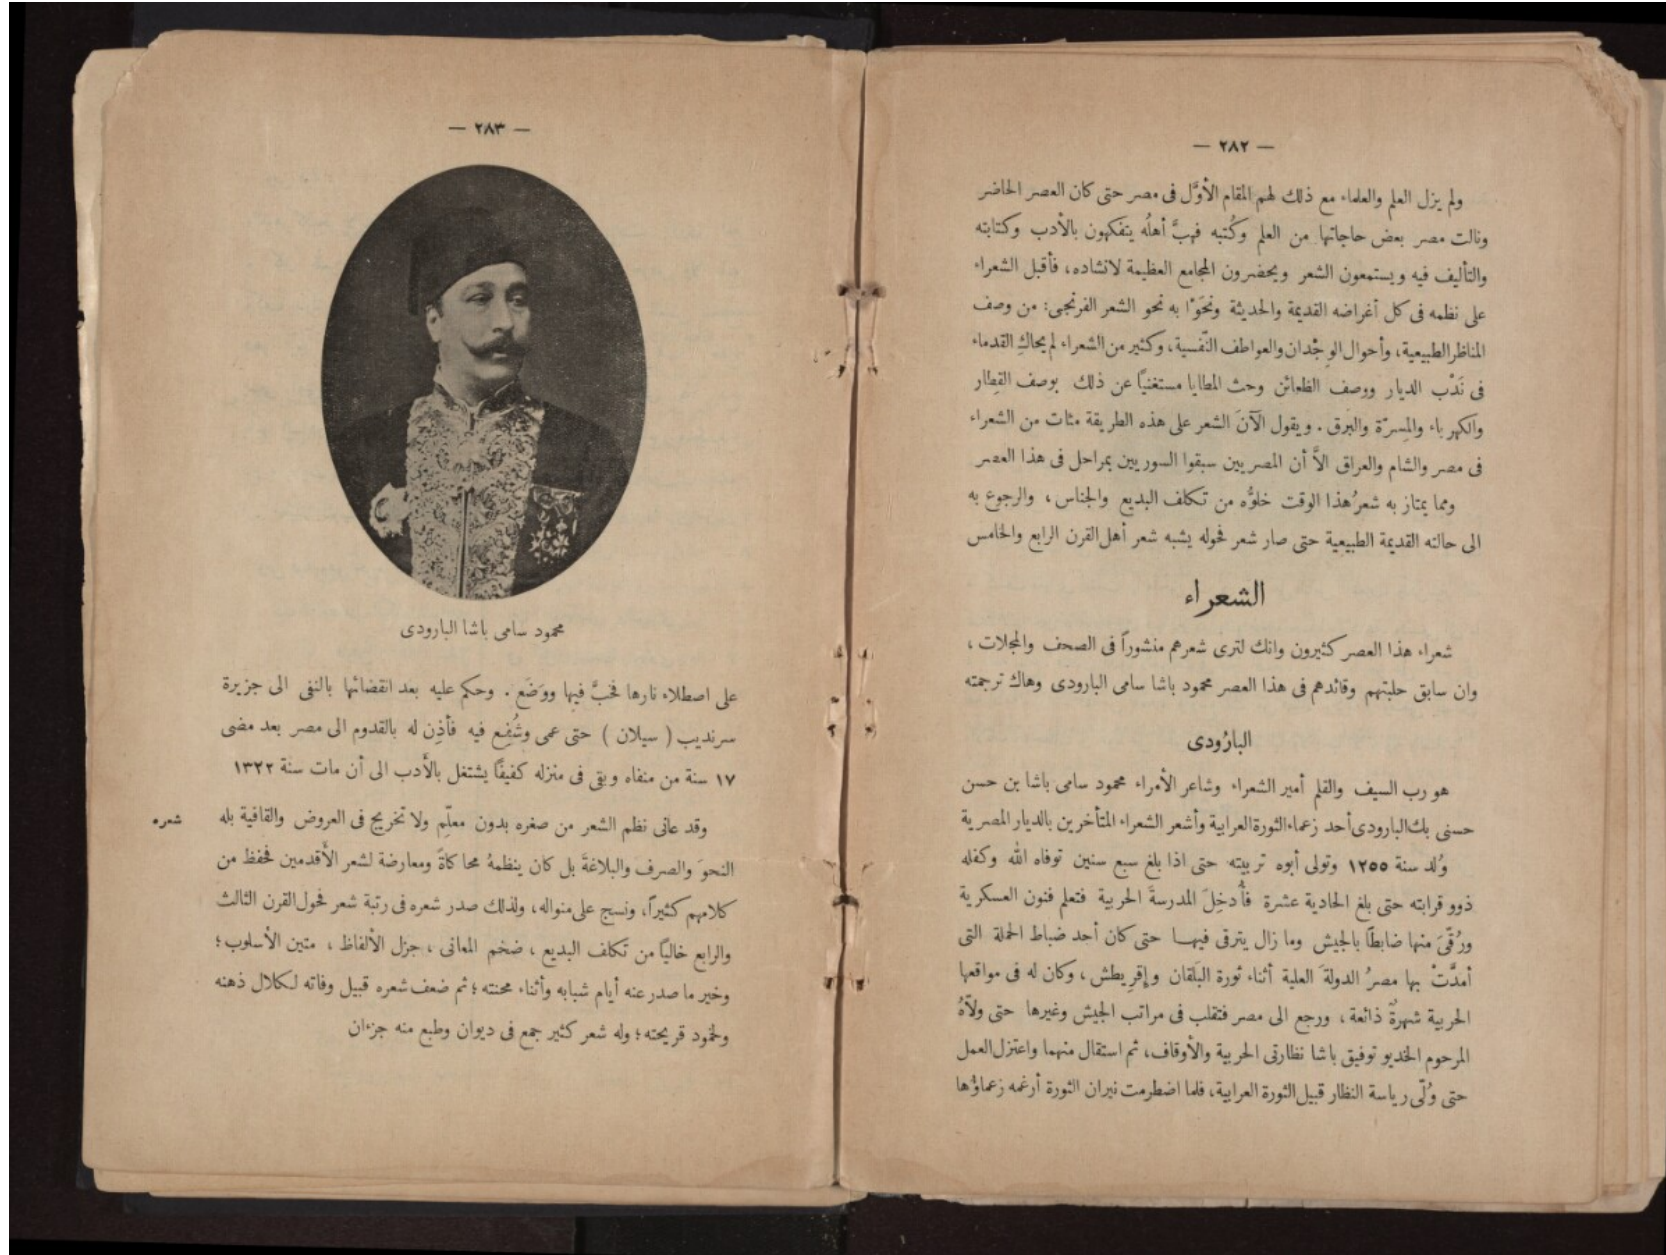 — ٢٨٢ —
ولم يزل العلم والعلماء مع ذلك لهم المقام الأوَّل فى مصر حتى كان العصر الحاضر
ونالت مصر بعض حاجاتها من العلم وكُتبه فهبَّ أهلُه يتفكهون بالأدب وكتابته
والتأليف فيه ويستمعون الشعر ويحضرون المجامع العظيمة لانشاده، فأقبل الشعراء
على نظمه فى كل أغراضه القديمة والحديثة ونحَوْا به نحو الشعر الفرنجى: من وصف
المناظر الطبيعية، وأحوال الوِجْدان والعواطف النّفسية، وكثير من الشعراء لم يحاكِ القدماء
فى نَدْب الديار ووصف الظعائن وحث المطايا مستغنيًا عن ذلك بوصف القِطار
والكهرباء والمِسرّة والبرق . ويقول الآنَ الشعر على هذه الطريقة مئات من الشعراء
فى مصر والشام والعراق الاَّ أن المصريين سبقوا السوريين بمراحل فى هذا العصر
ومما يمتاز به شعرُ هذا الوقت خلوُّه من تكلف البديع والجناس، والرجوع به
الى حالته القديمة الطبيعية حتى صار شعر فحوله يشبه شعر أهل القرن الرابع والخامس
الشعراء
شعراء هذا العصر كثيرون وانك لترى شعرهم منشوراً فى الصحف والمجلات ،
وان سابق حلبتهم وقائدهم فى هذا العصر محمود باشا سامى البارودى وهاك ترجمته
البارُودى
هو رب السيف والقلم أمير الشعراء وشاعر الأمراء محمود سامى باشا بن حسن
حسنى بك البارودى أحد زعماء الثورة العرابية وأشعر الشعراء المتأخرين بالديار المصرية
وُلد سنة ١٢٥٥ وتولى أبوه تربيته حتى اذا بلغ سبع سنين توفاه الله وكفله
ذوو قرابته حتى بلغ الحادية عشرة فأُدخِلَ المدرسةَ الحربية فتعلم فنون العسكرية
ورُقّىَ منها ضابطًا بالجيش وما زال يترقى فيهـا حتى كان أحد ضباط الحملة التى
أمدَّتْ بها مصرُ الدولةَ العلية أثناء ثورة البَلقان وإقرِيطش، وكان له فى مواقعها
الحربية شهرةٌ ذائعة ، ورجع الى مصر فتقلب فى مراتب الجيش وغيرها حتى ولاَّهُ
المرحوم الخديو توفيق باشا نظارتى الحربية والأوقاف، ثم استقال منهما واعتزل العمل
حتى وُلّى رياسة النظار قبيل الثورة العرابية، فلما اضطرمت نيران الثورة أرغمه زعماؤها
— ٢٨٣ —
محمود سامى باشا البارودى
على اصطلاء نارها فخبَّ فيها ووَضَع . وحكم عليه بعد انقضائها بالنفى الى جزيرة
سرنديب ( سيلان ) حتى عمى وشُفِع فيه فأذِن له بالقدوم الى مصر بعد مضى
١٧ سنة من منفاه وبقى فى منزله كفيفًا يشتغل بالأدب الى أن مات سنة ١٣٢٢
شعره
وقد عانى نظم الشعر من صغره بدون معلِّم ولا تخريج فى العروض والقافية بله
النحوَ والصرف والبلاغةَ بل كان ينظمهُ محاكاةً ومعارضة لشعر الأقدمين فحفظ من
كلامهم كثيراً، ونسج على منواله، ولذلك صدر شعره فى رتبة شعر فحول القرن الثالث
والرابع خاليًا من تكلف البديع ، ضخم المعانى ، جزل الألفاظ ، متين الأسلوب؛
وخير ما صدر عنه أيام شبابه وأثناء محنته ؛ ثم ضعف شعره قبيل وفاته لكلال ذهنه
ولخمود قريحته ؛ وله شعر كثير جمع فى ديوان وطبع منه جزءان